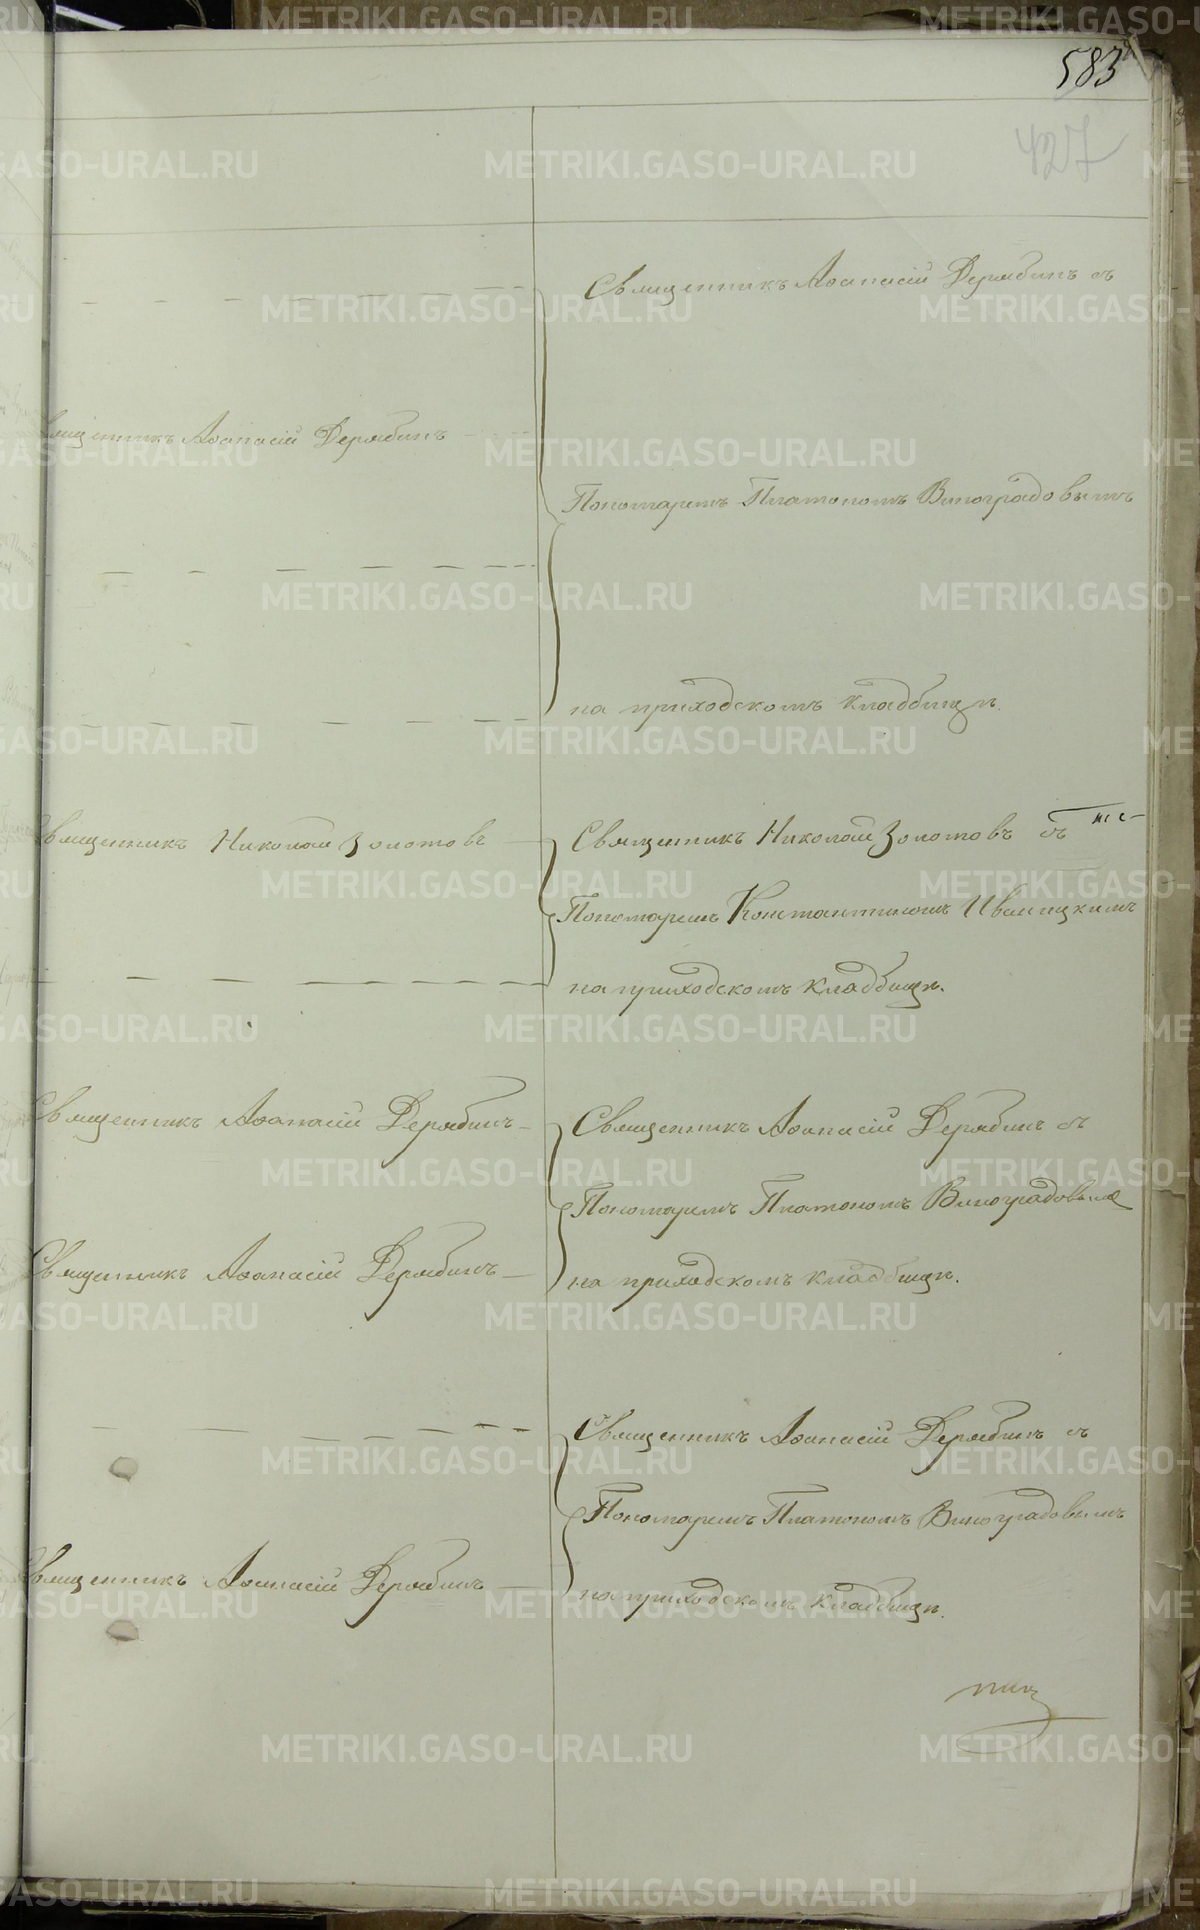 583
427
Священникъ Аѳанасій Дерябинъ съ
Священникъ Аѳанасій Дерябинъ
Пономаремъ Платономъ Виноградовымъ
на приходскомъ кладбищѣ.
Священникъ Николай Золотовъ
Священникъ Николай Золотовъ съ
Пономаремъ Константиномъ Иваницкимъ
на приходскомъ кладбищѣ.
Священникъ Аѳанасій Дерябинъ
Священникъ Аѳанасій Дерябинъ съ
Пономаремъ Платономъ Виноградовымъ
Священникъ Аѳанасій Дерябинъ
на приходскомъ кладбищѣ.
Священникъ Аѳанасій Дерябинъ съ
Пономаремъ Платономъ Виноградовымъ
Священникъ Аѳанасій Дерябинъ
на приходскомъ кладбищѣ.
METRIKI.GASO-URAL.RU